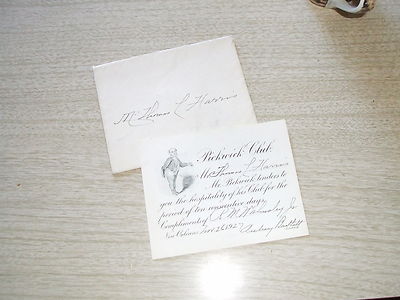 Mr Thomas L Harris
Pickwick Club
Mr. Thomas L Harris
Mr. Pickwick tenders to
you the hospitality of his Club for the
period of ten consecutive days,
Compliments of R. M. Walmsley Jr
New Orleans, Nov. 26 1927